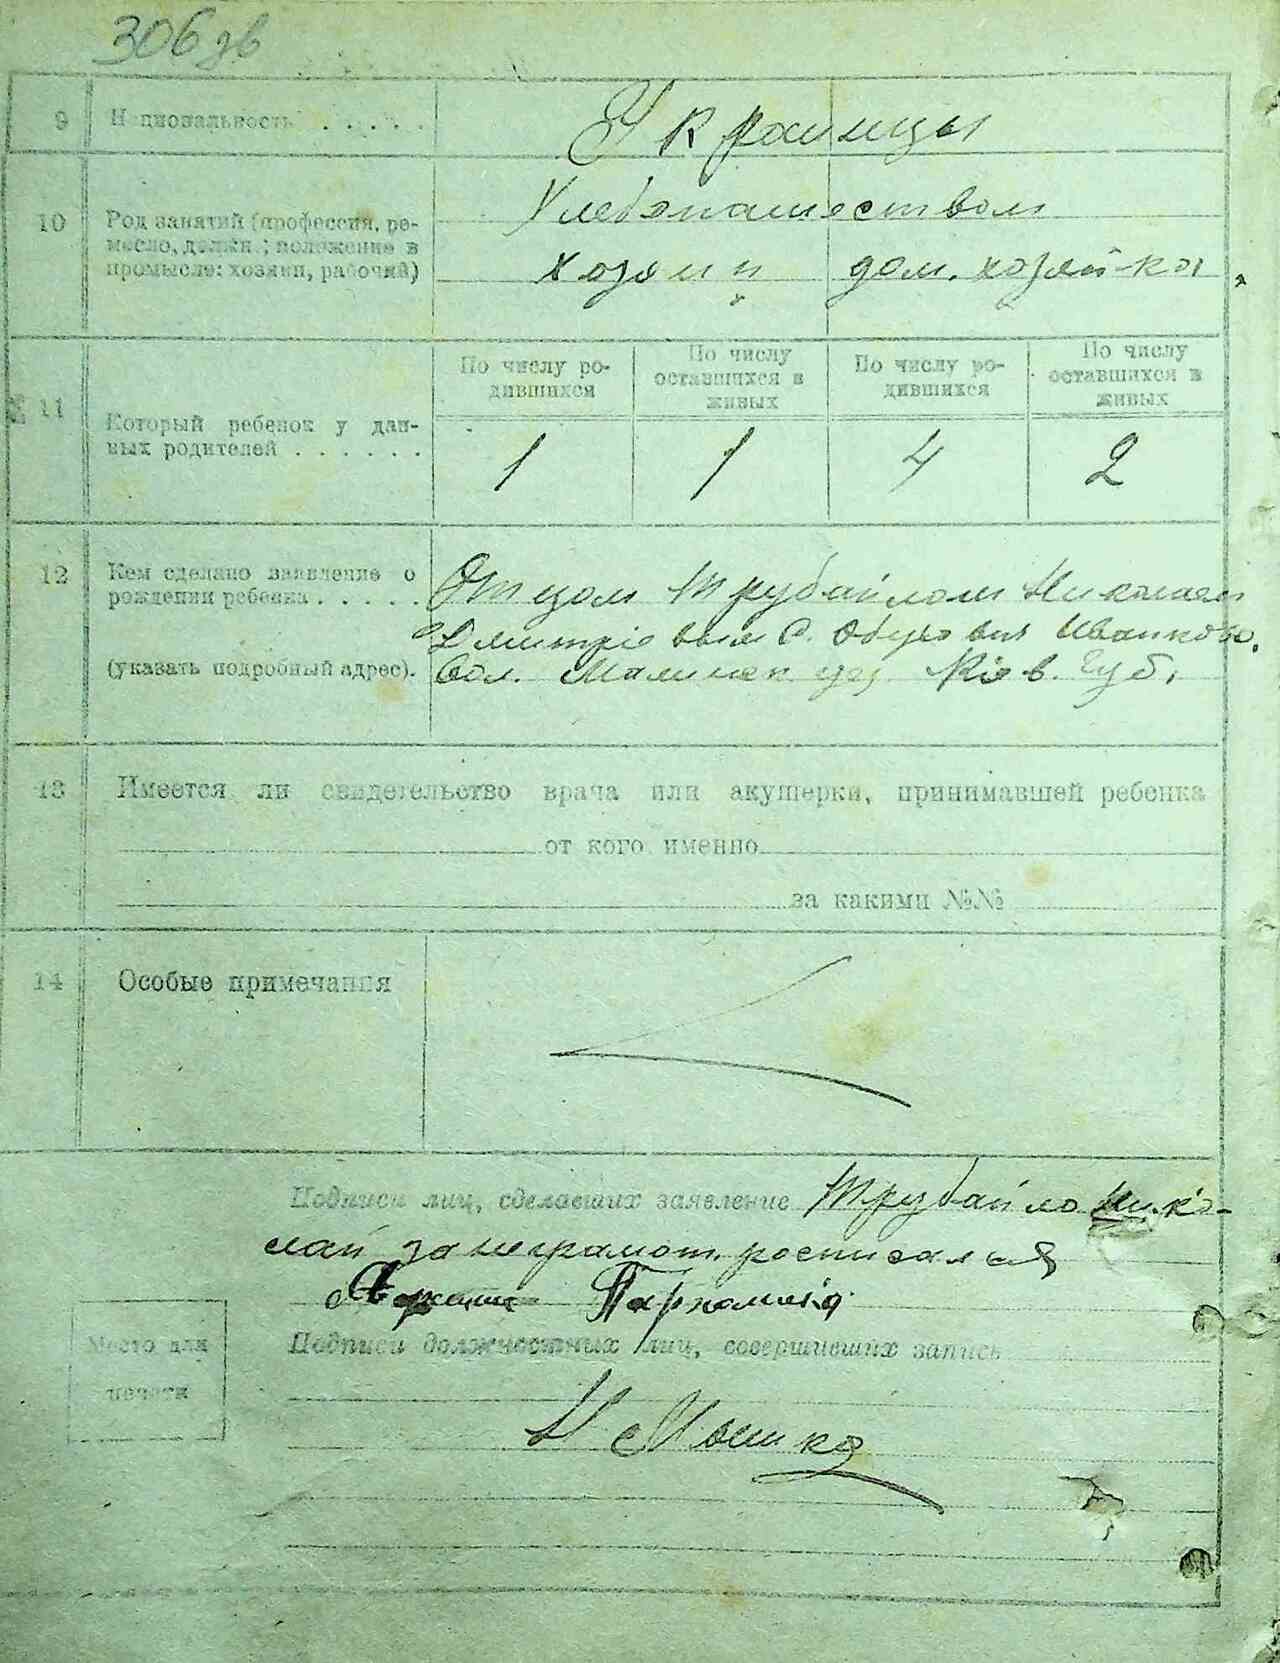 306 зв
9 Национальность . . . . . Украинцы
10 Род занятий (профессия, ре-
месло, должн.; положение в
промысле: хозяин, рабочий)
Хлебопашеством
хозяин дом. хозяй-ка
11 Который ребенок у дан-
ных родителей . . . . . .
По числу ро-
дившихся
По числу
оставшихся в
живых
По числу ро-
дившихся
По числу
оставшихся в
живых
1 1 4 2
12 Кем сделано заявление о
рождении ребенка . . . . .
(указать подробный адрес).
Отцом Трубайлом Николаем
Дмитрiевым С. Обухович Иванково.
Вол. Малинск. уез Кiев. Губ.
13 Имеется ли свидетельство врача или акушерки, принимавшей ребенка
от кого именно
за какими №№
14 Особые примечания
Подписи лиц, сделавших заявление Трубайло Нико-
лай за неграмот. росписался
Пархоменко
Место для
печати
Подписи должностных лиц, совершивших запись